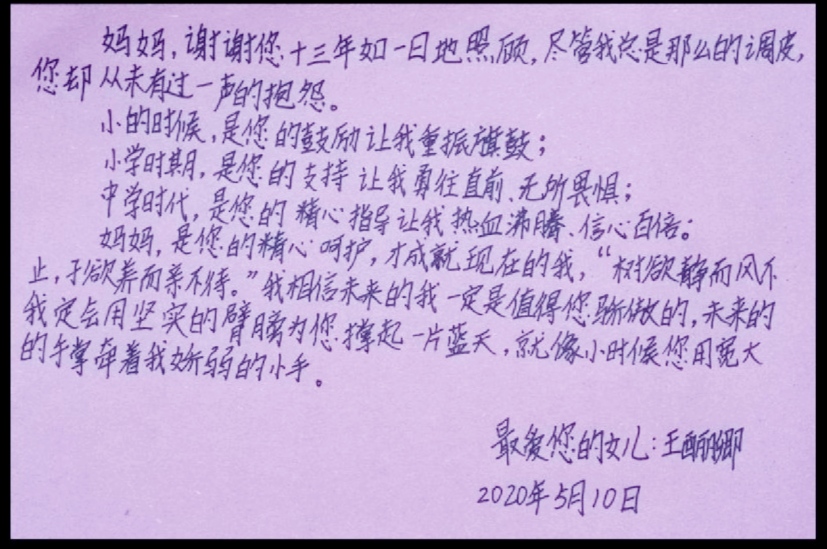 妈妈，谢谢您十三年如一日地照顾，尽管我总是那么的调皮，
您却从未有过一声的抱怨。
小的时候，是您的鼓励让我重振旗鼓；
小学时期，是您的支持让我勇往直前、无所畏惧；
中学时代，是您的精心指导让我热血沸腾、信心百倍。
妈妈，是您的精心呵护，才成就现在的我，“树欲静而风不
止，子欲养而亲不待。”我相信未来的我一定是值得您骄傲的，未来的
我定会用坚实的臂膀为您撑起一片蓝天，就像小时候您用宽大
的手掌牵着我娇弱的小手。
最爱您的女儿：王丽卿
2020年5月10日